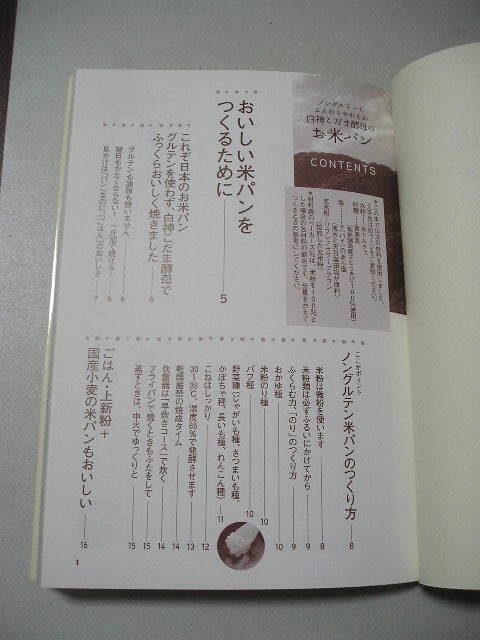 ノングルテンで
ふんわりやわらか
白神こだま酵母の
お米パン
CONTENTS
おいしい米パンを
つくるために 5
これぞ日本のお米パン
グルテンを使わず、白神こだま酵母で
ふっくらおいしく焼きました 6
グルテンも油脂も使いません 6
翌日もかたくならない！
見かけは「パン」なのに、「ごはん」のおいしさ 7
ここがポイント
ノングルテン米パンのつくり方 8
米粉は微粉を使います 8
米粉類は必ずふるいにかけてから 9
ふくらむ力、「のり」のつくり方 9
おかゆ種 10
米粉のり種 10
パフ種 10
野菜種（じゃがいも種、さつまいも種、
かぼちゃ種、長いも種、れんこん種） 11
こねはしっかり 12
30〜35℃、湿度85％で発酵させます 13
乾燥厳禁の焼成タイム 14
炊飯器は「早炊きコース」で炊く 14
フライパンで焼くときもふたをして 15
蒸すときは、中火でゆっくりと 15
ごはん・上新粉＋
国産小麦の米パンもおいしい 16
1